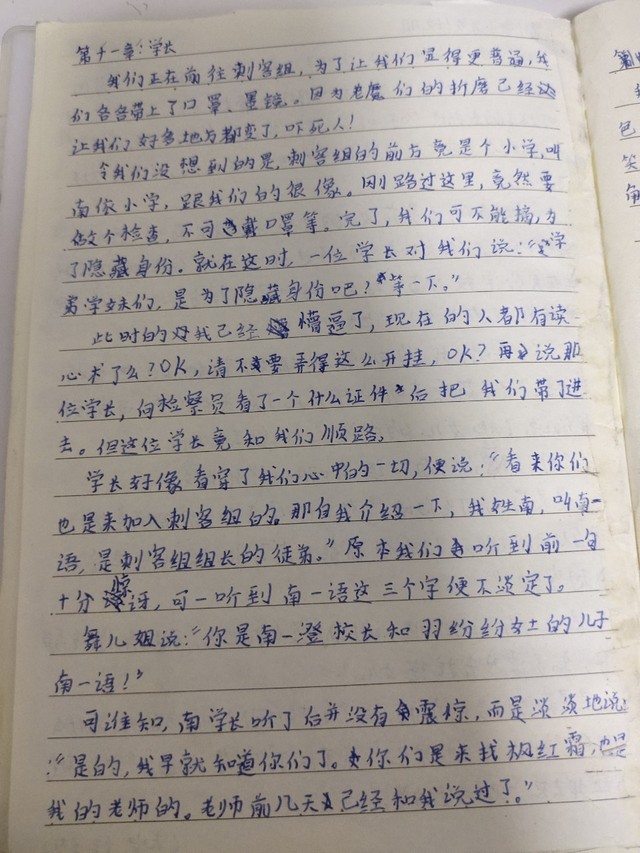 第十一章:学长
我们正在前往刺客组,为了让我们显得更普通,我
们各各带上了口罩、墨镜。因为老魔们的折磨已经
让我们好多地方都变了,吓死人!
令我们没想到的是,刺客组的前方竟是个小学,叫
南依小学,跟我们的很像。刚路过这里,竟然要
做个检查,不可戴口罩等。完了,我们可不能搞,为
了隐藏身份。就在这时,一位学长对我们说:“学
弟学妹们,是为了隐藏身份吧?等一下。”
此时的我已经懵逼了,现在的人都有读
心术了么?OK,请不要弄得这么开挂,OK?再说那
位学长,向检察员看了一个什么证件后把我们带了进
去。但这位学长竟和我们顺路。
学长好像看穿了我们心中的一切,便说:“看来你们
也是来加入刺客组的。那自我介绍一下,我姓南,叫南一
语,是刺客组组长的徒弟。”原本我们听到前一句
十分惊讶,可一听到南一语这三个字便不淡定了。
舞儿姐说:“你是南一澄校长和羽纷纷女士的儿子
南一语!”
可谁知,南学长听了后并没有震惊,而是淡淡地说
:“是的,我早就知道你们了。你们是来找枫红霜,也是
我的老师的。老师前几天已经和我说过了。”